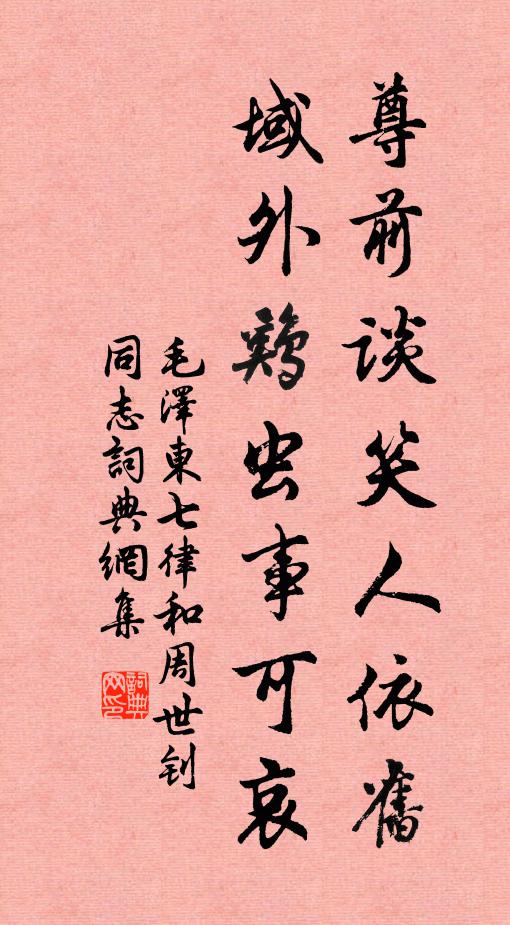 尊前談笑人依舊
域外鷄虫事可哀
毛澤東七律和周世钊
同志詞典網集
詞典网印